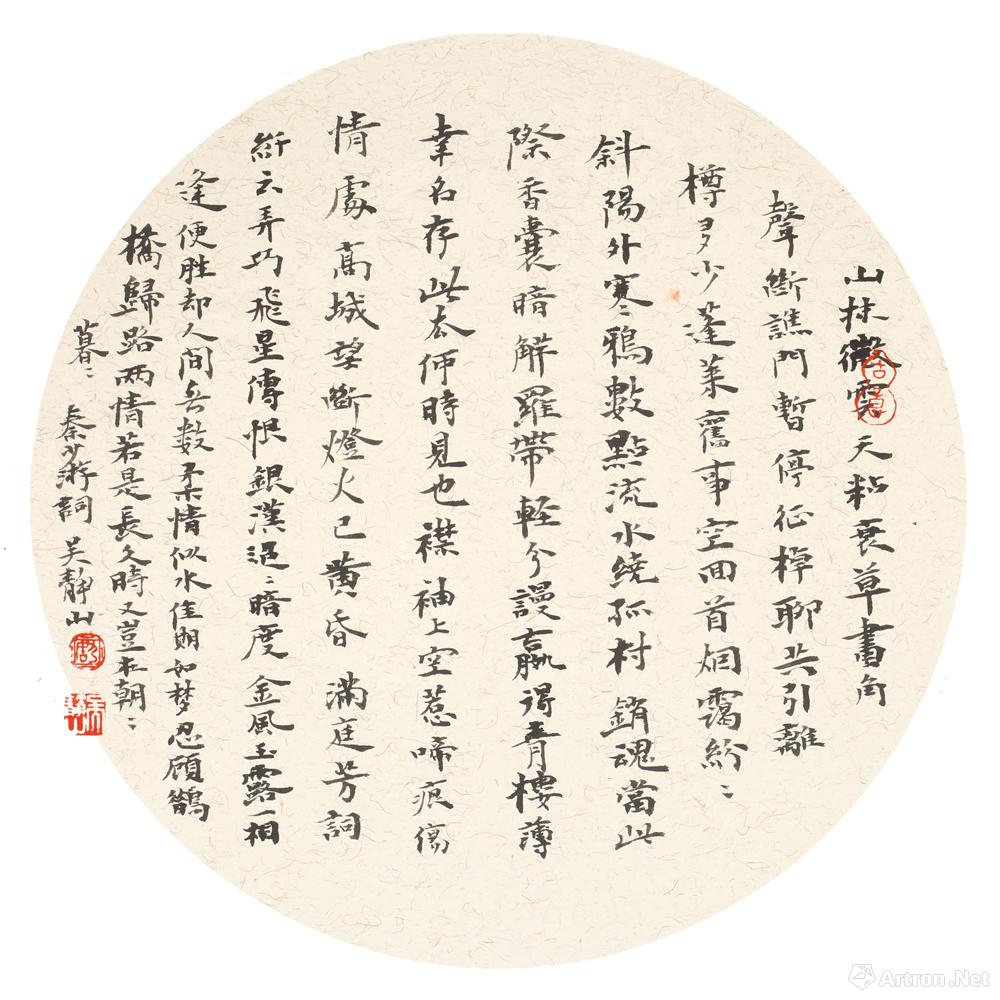 山抹微雲天粘衰草畫角
聲斷譙門暫停征棹聊共引離
樽多少蓬萊舊事空回首烟靄紛〻
斜陽外寒鴉數點流水繞孤村銷魂當此
際香囊暗解羅帶輕分謾贏得青樓薄
幸名存此去何時見也襟袖上空惹啼痕傷
情處高城望斷燈火已黃昏滿庭芳詞
纖云弄巧飛星傳恨銀漢迢〻暗度金風玉露一相
逢便胜却人間無數柔情似水佳期如梦忍顧鵲
橋歸路兩情若是長久時又豈在朝〻
暮〻 秦少游詞 吴靜山
Artron.Net